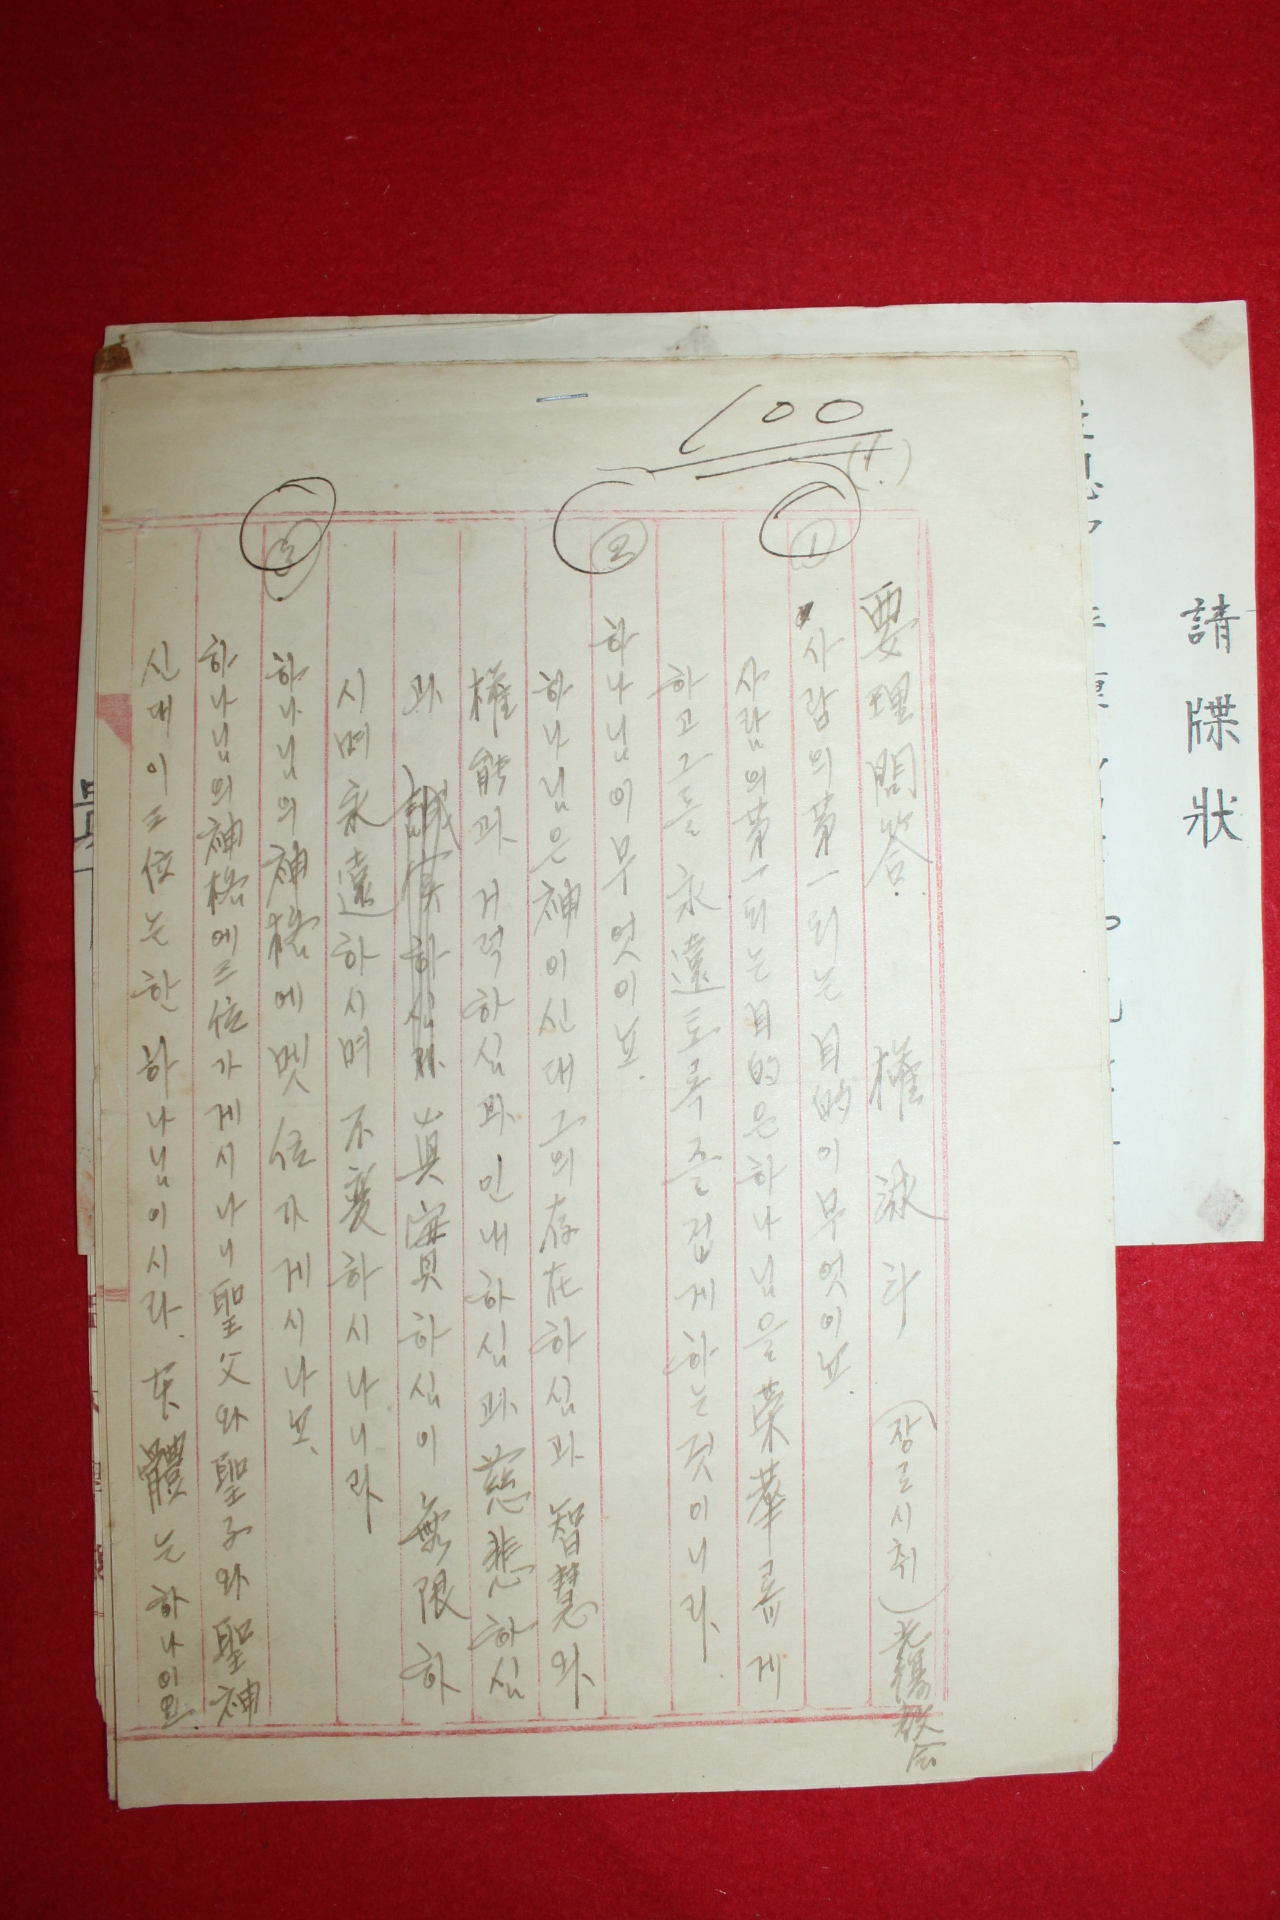 請牒狀
100
(1.)
要理問答. 權 淑 (장로시취) 敎会
① 사람의 第一되는 目的이 부엇이뇨.
사람의 第一되는 目的은 하나님을 榮華롭게
하고 그를 永遠토록 즐겁게 하는 것이니라.
② 하나님이 무엇이뇨.
하나님은 神이신대 그의 存在하심과 智慧와
權能과 거럭하심과 인내하심과 慈悲하심
과 誠実하심과 眞實하심이 無限하
시며 永遠하시며 不變하시나니라
③ 하나님의 神格에 몟 位가 게시나뇨.
하나님의 神格에 三位가 게시나니 聖父와 聖子와 聖神
신대 이 三位는 한 하나님이시라. 本體는 하나이요.